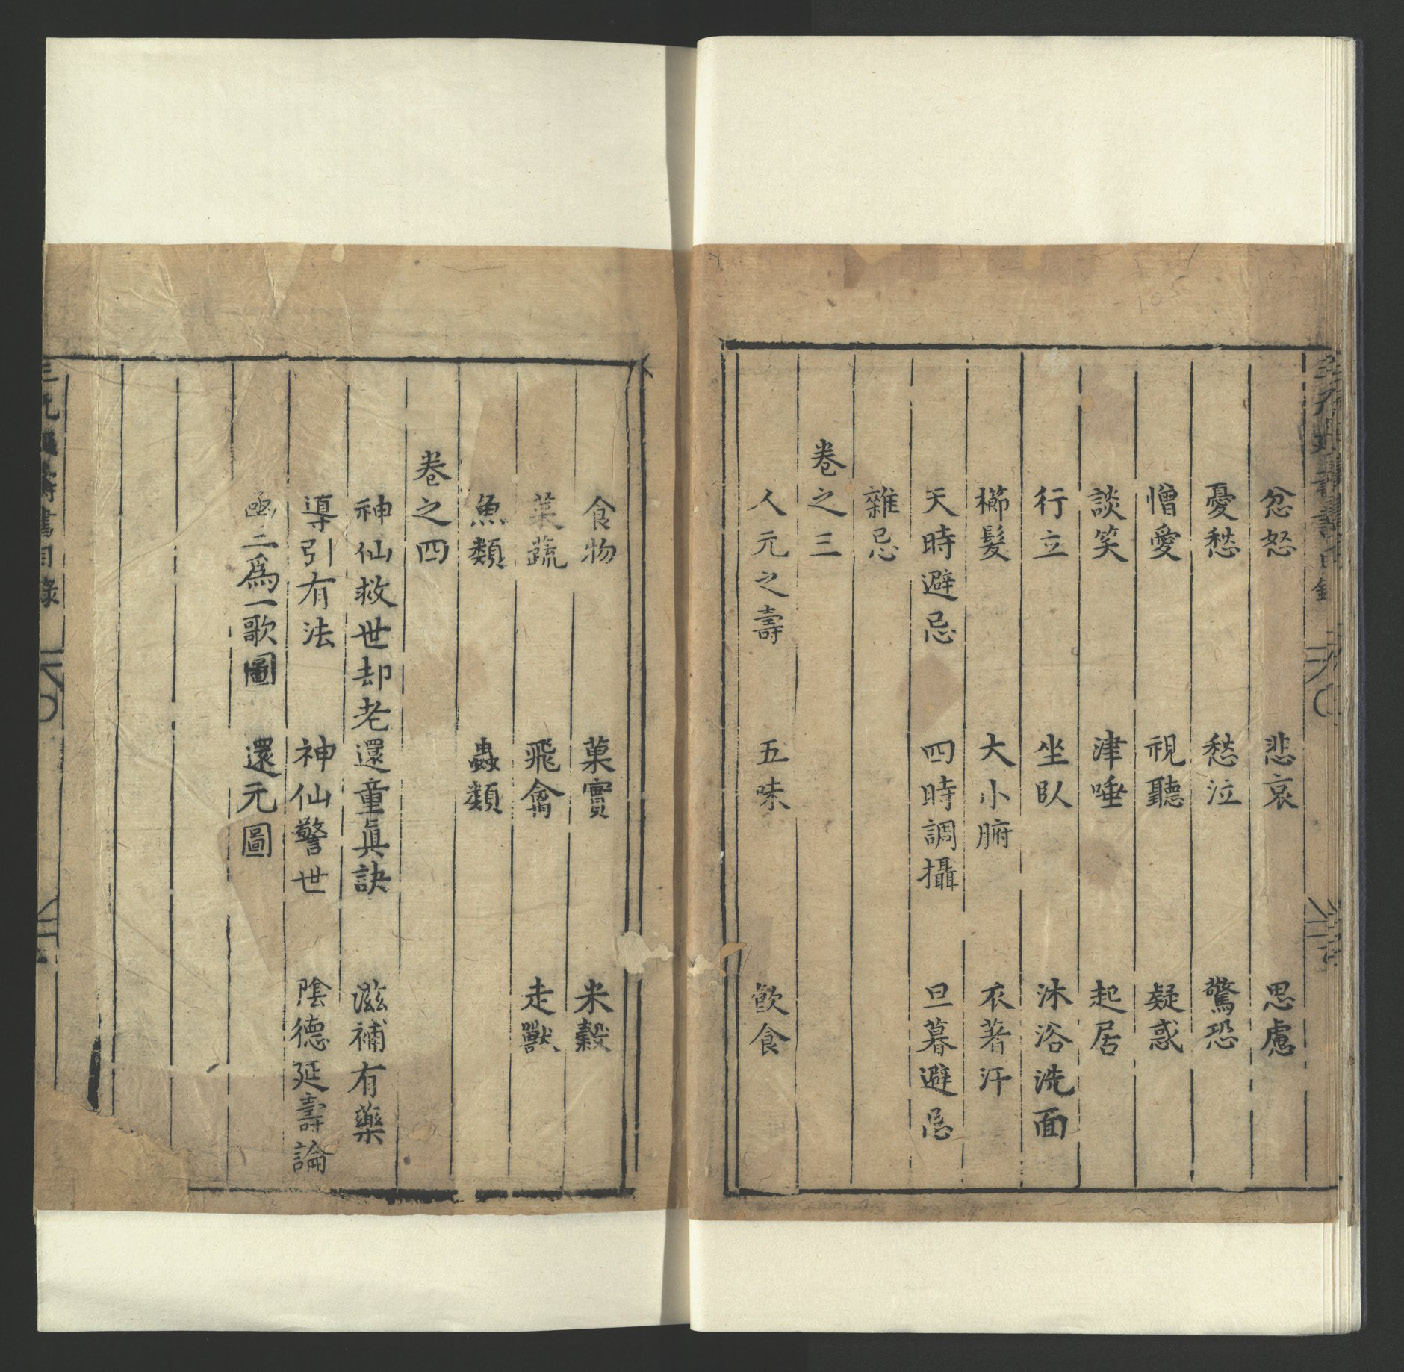 忿怒 悲哀 思慮
憂愁 愁泣 驚恐
憎愛 視聽 疑惑
談笑 津唾 起居
行立 坐臥 沐浴洗面
櫛髮 大小腑 衣著汗
天時避忌 四時調攝 旦暮避忌
雜忌
卷之三
人元之壽 五味 飲食
食物 菓實 米穀
菜蔬 飛禽 走獸
魚類 蟲類
卷之四
神仙救世却老還童眞訣 滋補有藥
導引有法 神仙警世 陰德延壽論
凾三爲一歌圖 還元圖
三元延壽書目錄